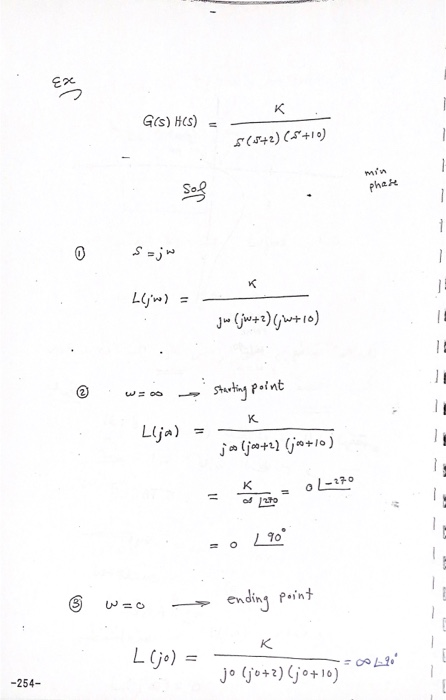 Ex
G(s) H(s) = K / s(s+2)(s+10)
Sol
min phase
① s = jω
L(jω) = K / jω(jω+2)(jω+10)
② ω = ∞ → starting point
L(j∞) = K / j∞(j∞+2)(j∞+10)
= K / ∞∠270 = 0∠-270
= 0 ∠90°
③ ω = 0 → ending point
L(j0) = K / j0(j0+2)(j0+10) = ∞∠-90°
-254-